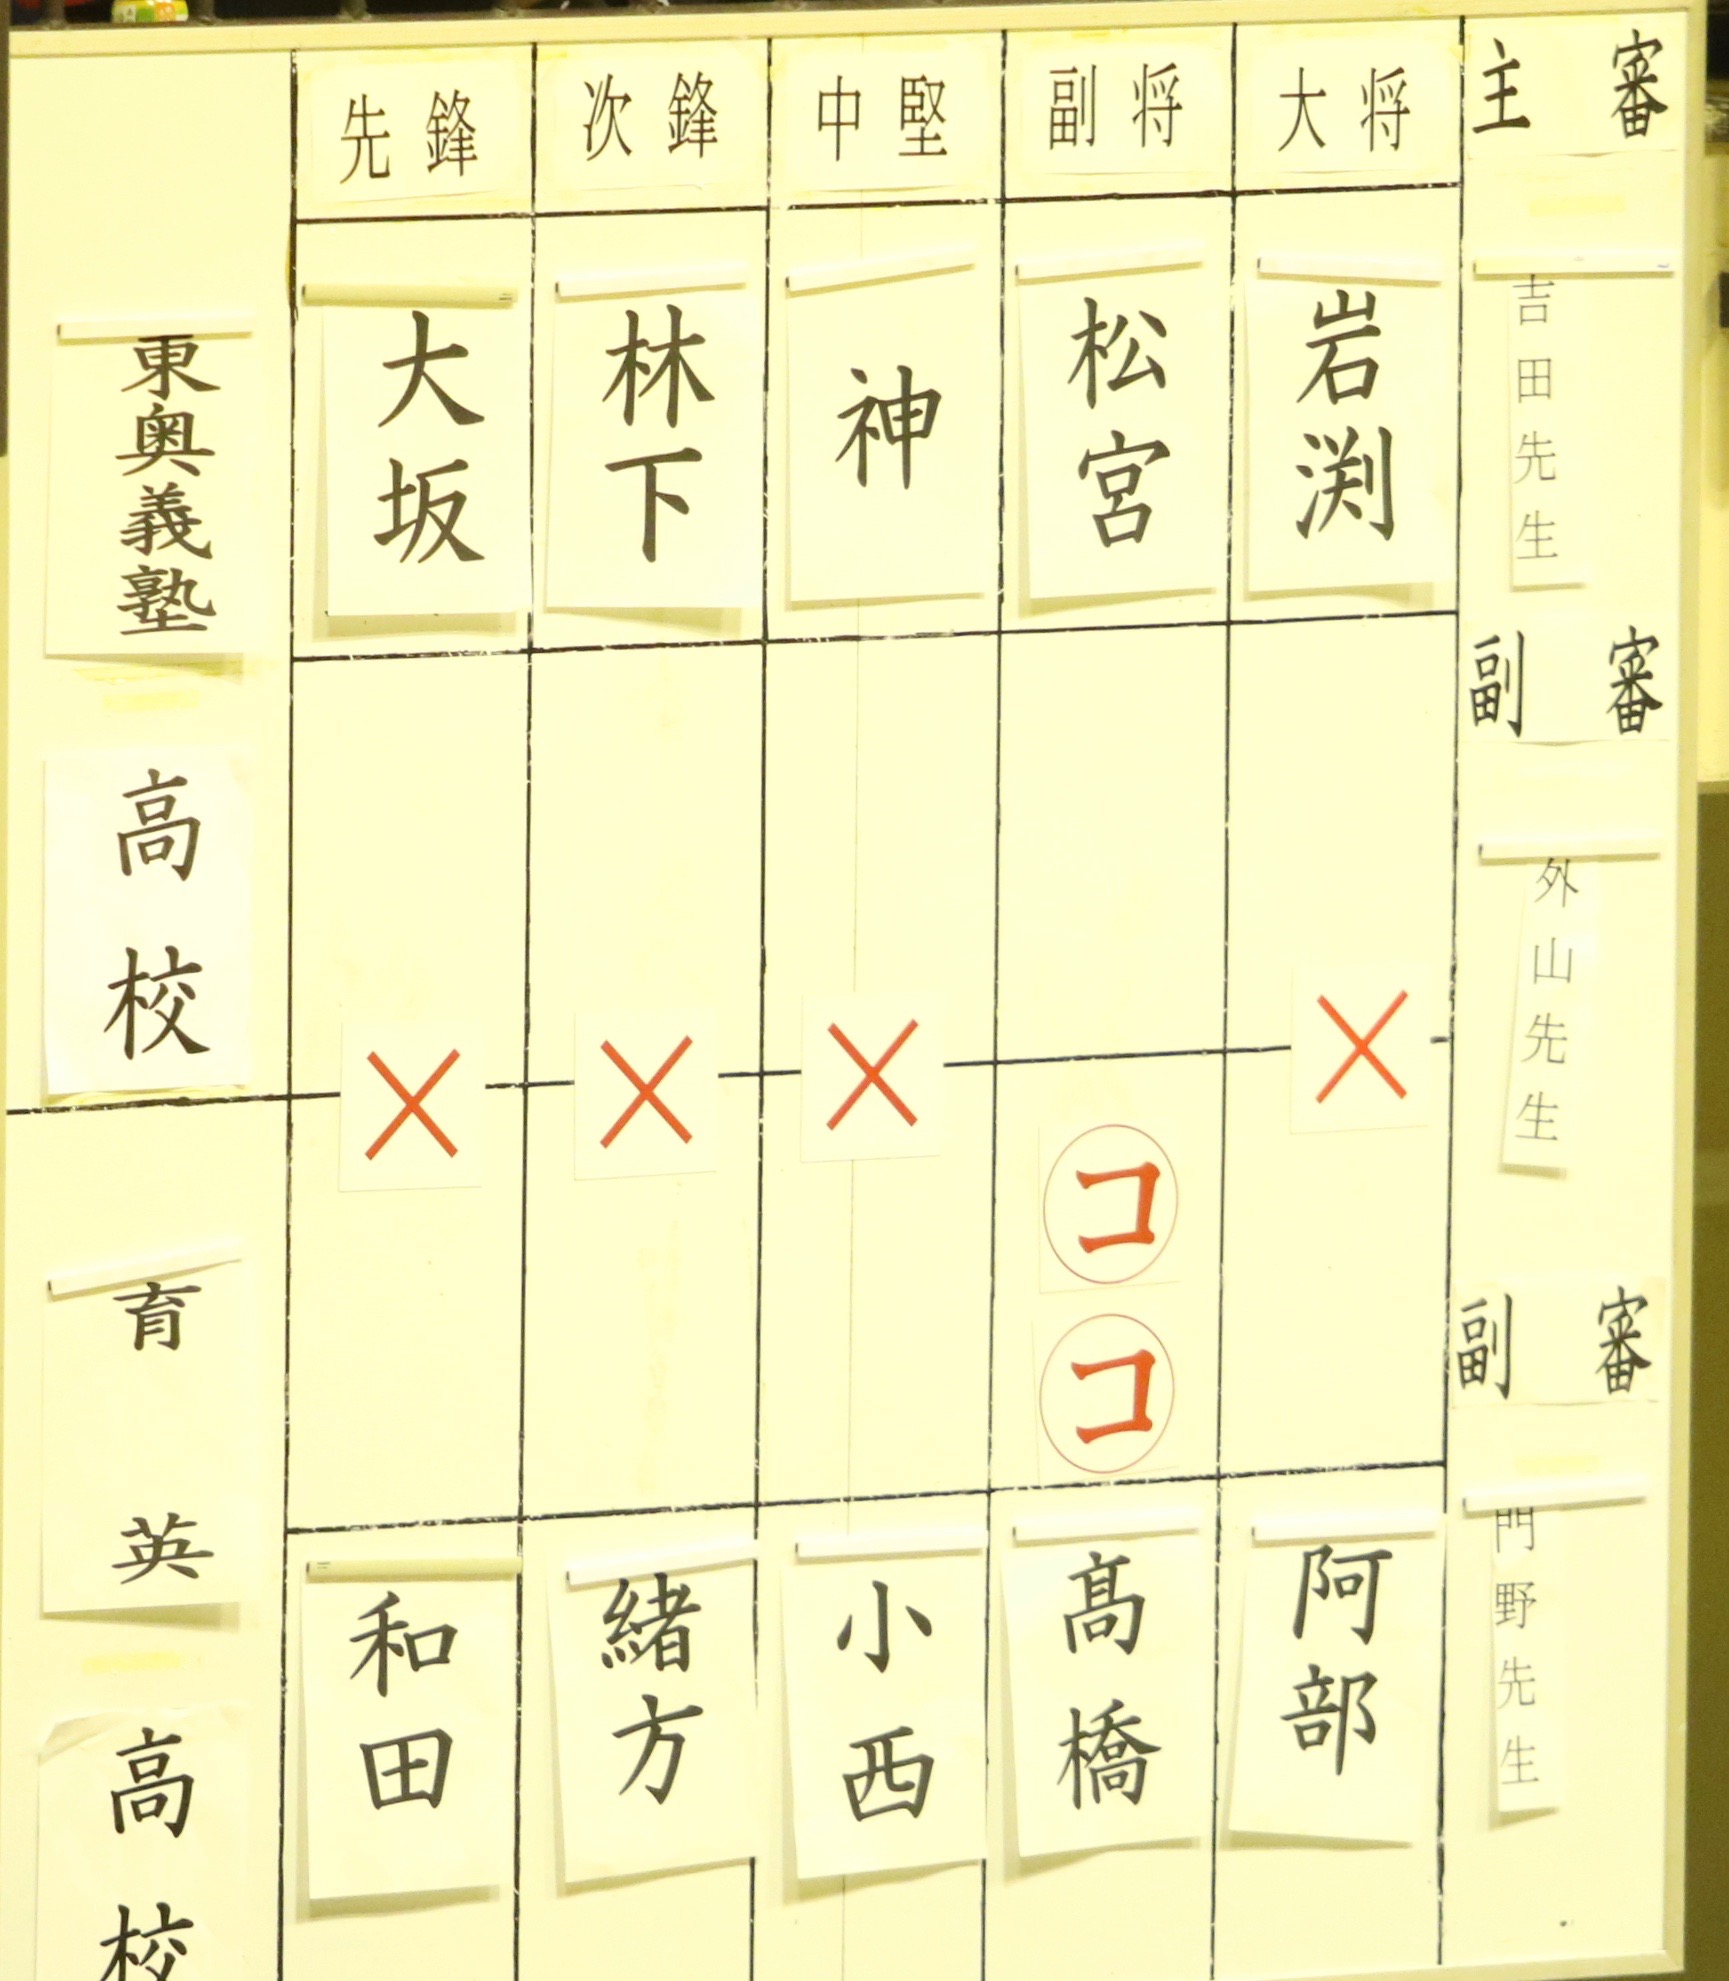 先鋒 次鋒 中堅 副将 大将 主審
東奥義塾高校
大坂
林下
神
松宮
岩渕
吉田先生
副審
外山先生
× × × ×
コ
コ
副審
門野先生
育英高校
和田
緒方
小西
髙橋
阿部